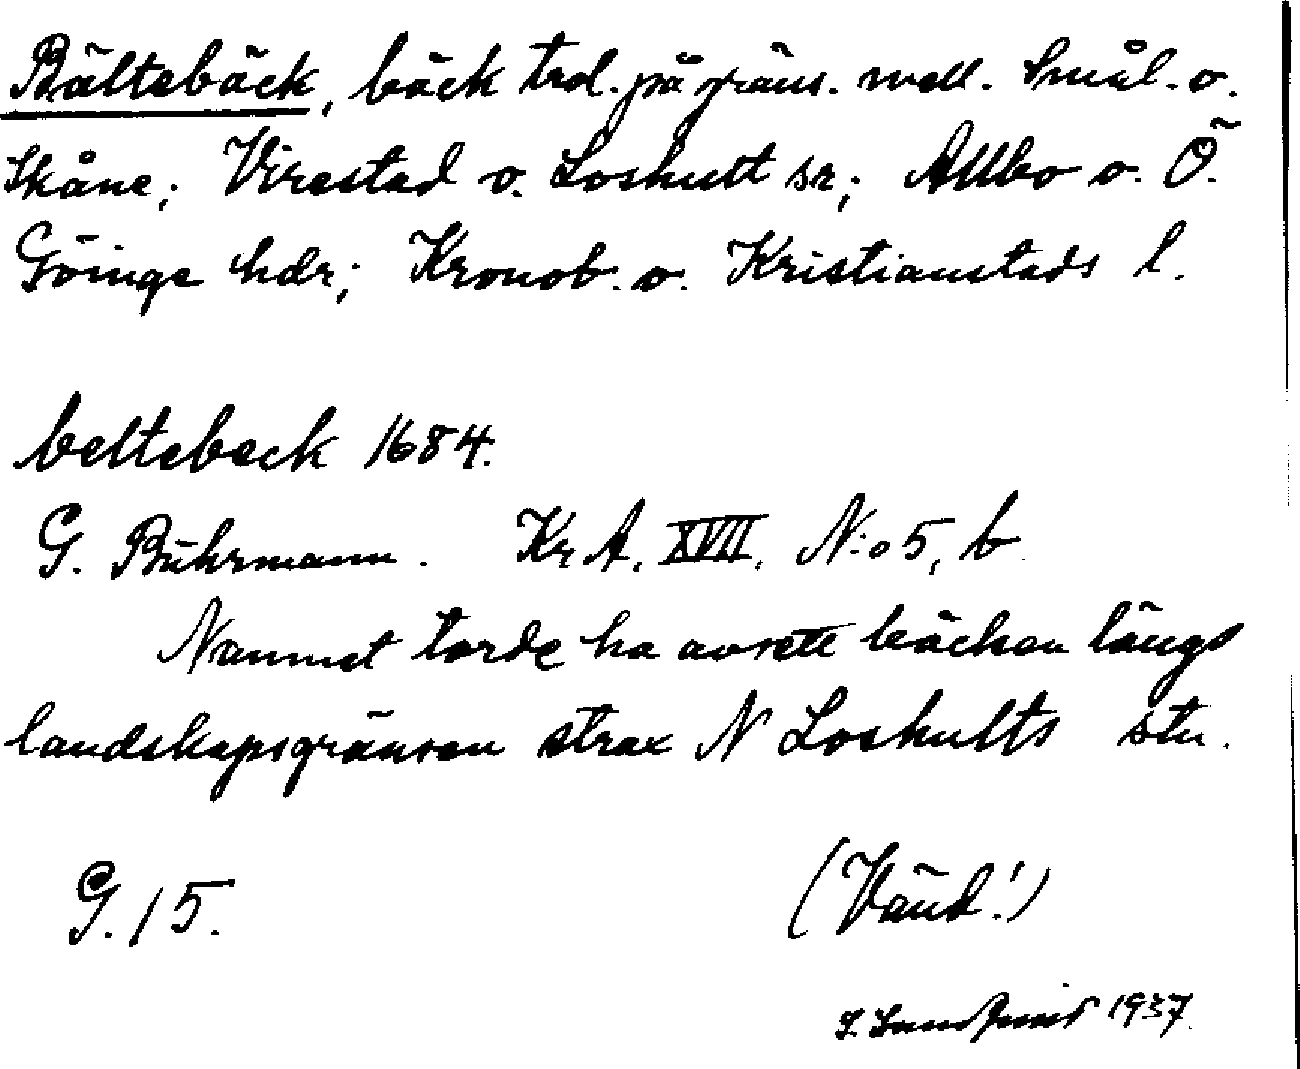 Bältebäck, bäck trol. på gräns. mell. Smål. o.
Skåne; Virestad o. Loshult sr; Allbo o. Ö.
Göinge hdr; Kronob. o. Kristianstads l.
beltebeck 1684.
G. Buhrmann. Kr A. XVII. N:o 5, b
Namnet torde ha avsett bäcken längs
landskapsgränsen strax N Loshults stn.
G. 15. (Vänd!)
1937